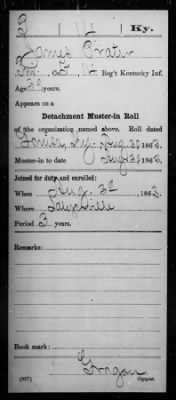 P | 14 | Ky.
James Prater
Co. , 14 Reg't Kentucky Inf.
Age 30 years.
Appears on a
Detachment Muster-in Roll
of the organization named above. Roll dated
Louisa, Ky. Aug 26 1863.
Muster-in to date Aug 26 1863.
Joined for duty and enrolled:
When Aug. 1863.
Where Salyersville
Period 3 years.
Remarks:
Book mark:
(357) Copyist.